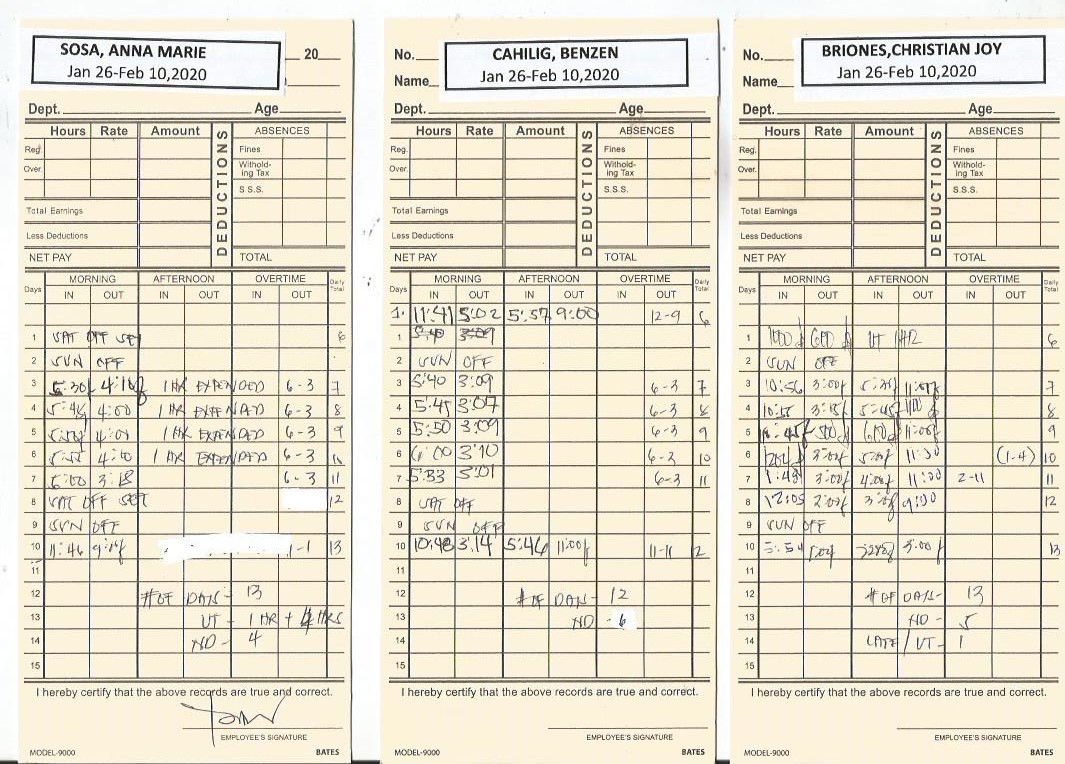 SOSA, ANNA MARIE
Jan 26-Feb 10,2020
20
Dept. Age
Hours Rate Amount DEDUCTIONS ABSENCES
Reg.
Over.
Fines
Withold-
ing Tax
S.S.S.
Total Earnings
Less Deductions
NET PAY TOTAL
Days MORNING AFTERNOON OVERTIME Daily Total
IN OUT IN OUT IN OUT
1 SAT OFF SET 6
2 SUN OFF
3 5:30 4:18 1 HR EXPENDED 6-3 7
4 5:45 4:00 1 HR EXPENDED 6-3 8
5 4:01 1 HR EXPENDED 6-3 9
6 1 HR EXPENDED 6-3
7 5:00 3:18 6-3 11
8 SAT OFF SET 12
9 SUN OFF
10 11:46 13
11
12 # OF DAYS - 13
13 UT - 1 HR + 4 HRS
14 ND - 4
15
I hereby certify that the above records are true and correct.
EMPLOYEE'S SIGNATURE
MODEL-9000 BATES
No.
CAHILIG, BENZEN
Name
Jan 26-Feb 10,2020
Dept. Age
Hours Rate Amount DEDUCTIONS ABSENCES
Reg.
Over.
Fines
Withold-
ing Tax
S.S.S.
Total Earnings
Less Deductions
NET PAY TOTAL
Days MORNING AFTERNOON OVERTIME Daily Total
IN OUT IN OUT IN OUT
1. 11:41 5:02 5:57 9:00 12-9 6
1 3:09
2 SUN OFF
3 5:40 3:09 6-3 7
4 5:45 3:07 6-3 8
5 5:50 3:09 6-3 9
6 6:00 3:10 6-3 10
7 5:33 3:01 6-3 11
8 SAT OFF
9 SUN OFF
10 10:48 3:14 5:46 11:00 11-11 12
11
12 # OF DAYS - 12
13 ND - 6
14
15
I hereby certify that the above records are true and correct.
EMPLOYEE'S SIGNATURE
MODEL-9000 BATES
No.
BRIONES,CHRISTIAN JOY
Name
Jan 26-Feb 10,2020
Dept. Age
Hours Rate Amount DEDUCTIONS ABSENCES
Reg.
Over.
Fines
Withold-
ing Tax
S.S.S.
Total Earnings
Less Deductions
NET PAY TOTAL
Days MORNING AFTERNOON OVERTIME Daily Total
IN OUT IN OUT IN OUT
1 UT 1HR 6
2 SUN OFF
3 10:56 3:00 7
4 8
5 11:00 9
6 3:00 11:30 (1-4) 10
7 1:43 3:00 4:00 11:00 2-11 11
8 12:05 2:00 9:00 12
9 SUN OFF
10 3:00 13
11
12 # OF DAYS - 13
13 ND - 5
14 LATE / UT - 1
15
I hereby certify that the above records are true and correct.
EMPLOYEE'S SIGNATURE
MODEL-9000 BATES